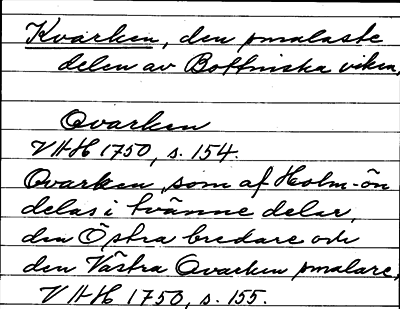 Kvarken, den smalaste
delen av Bottniska viken,
Qvarken
VAH 1750, s. 154.
Qvarken, som af Holm-ön
delas i tvänne delar,
den Östra bredare och
den Västra Qvarken smalare,
VAH 1750, s. 155.